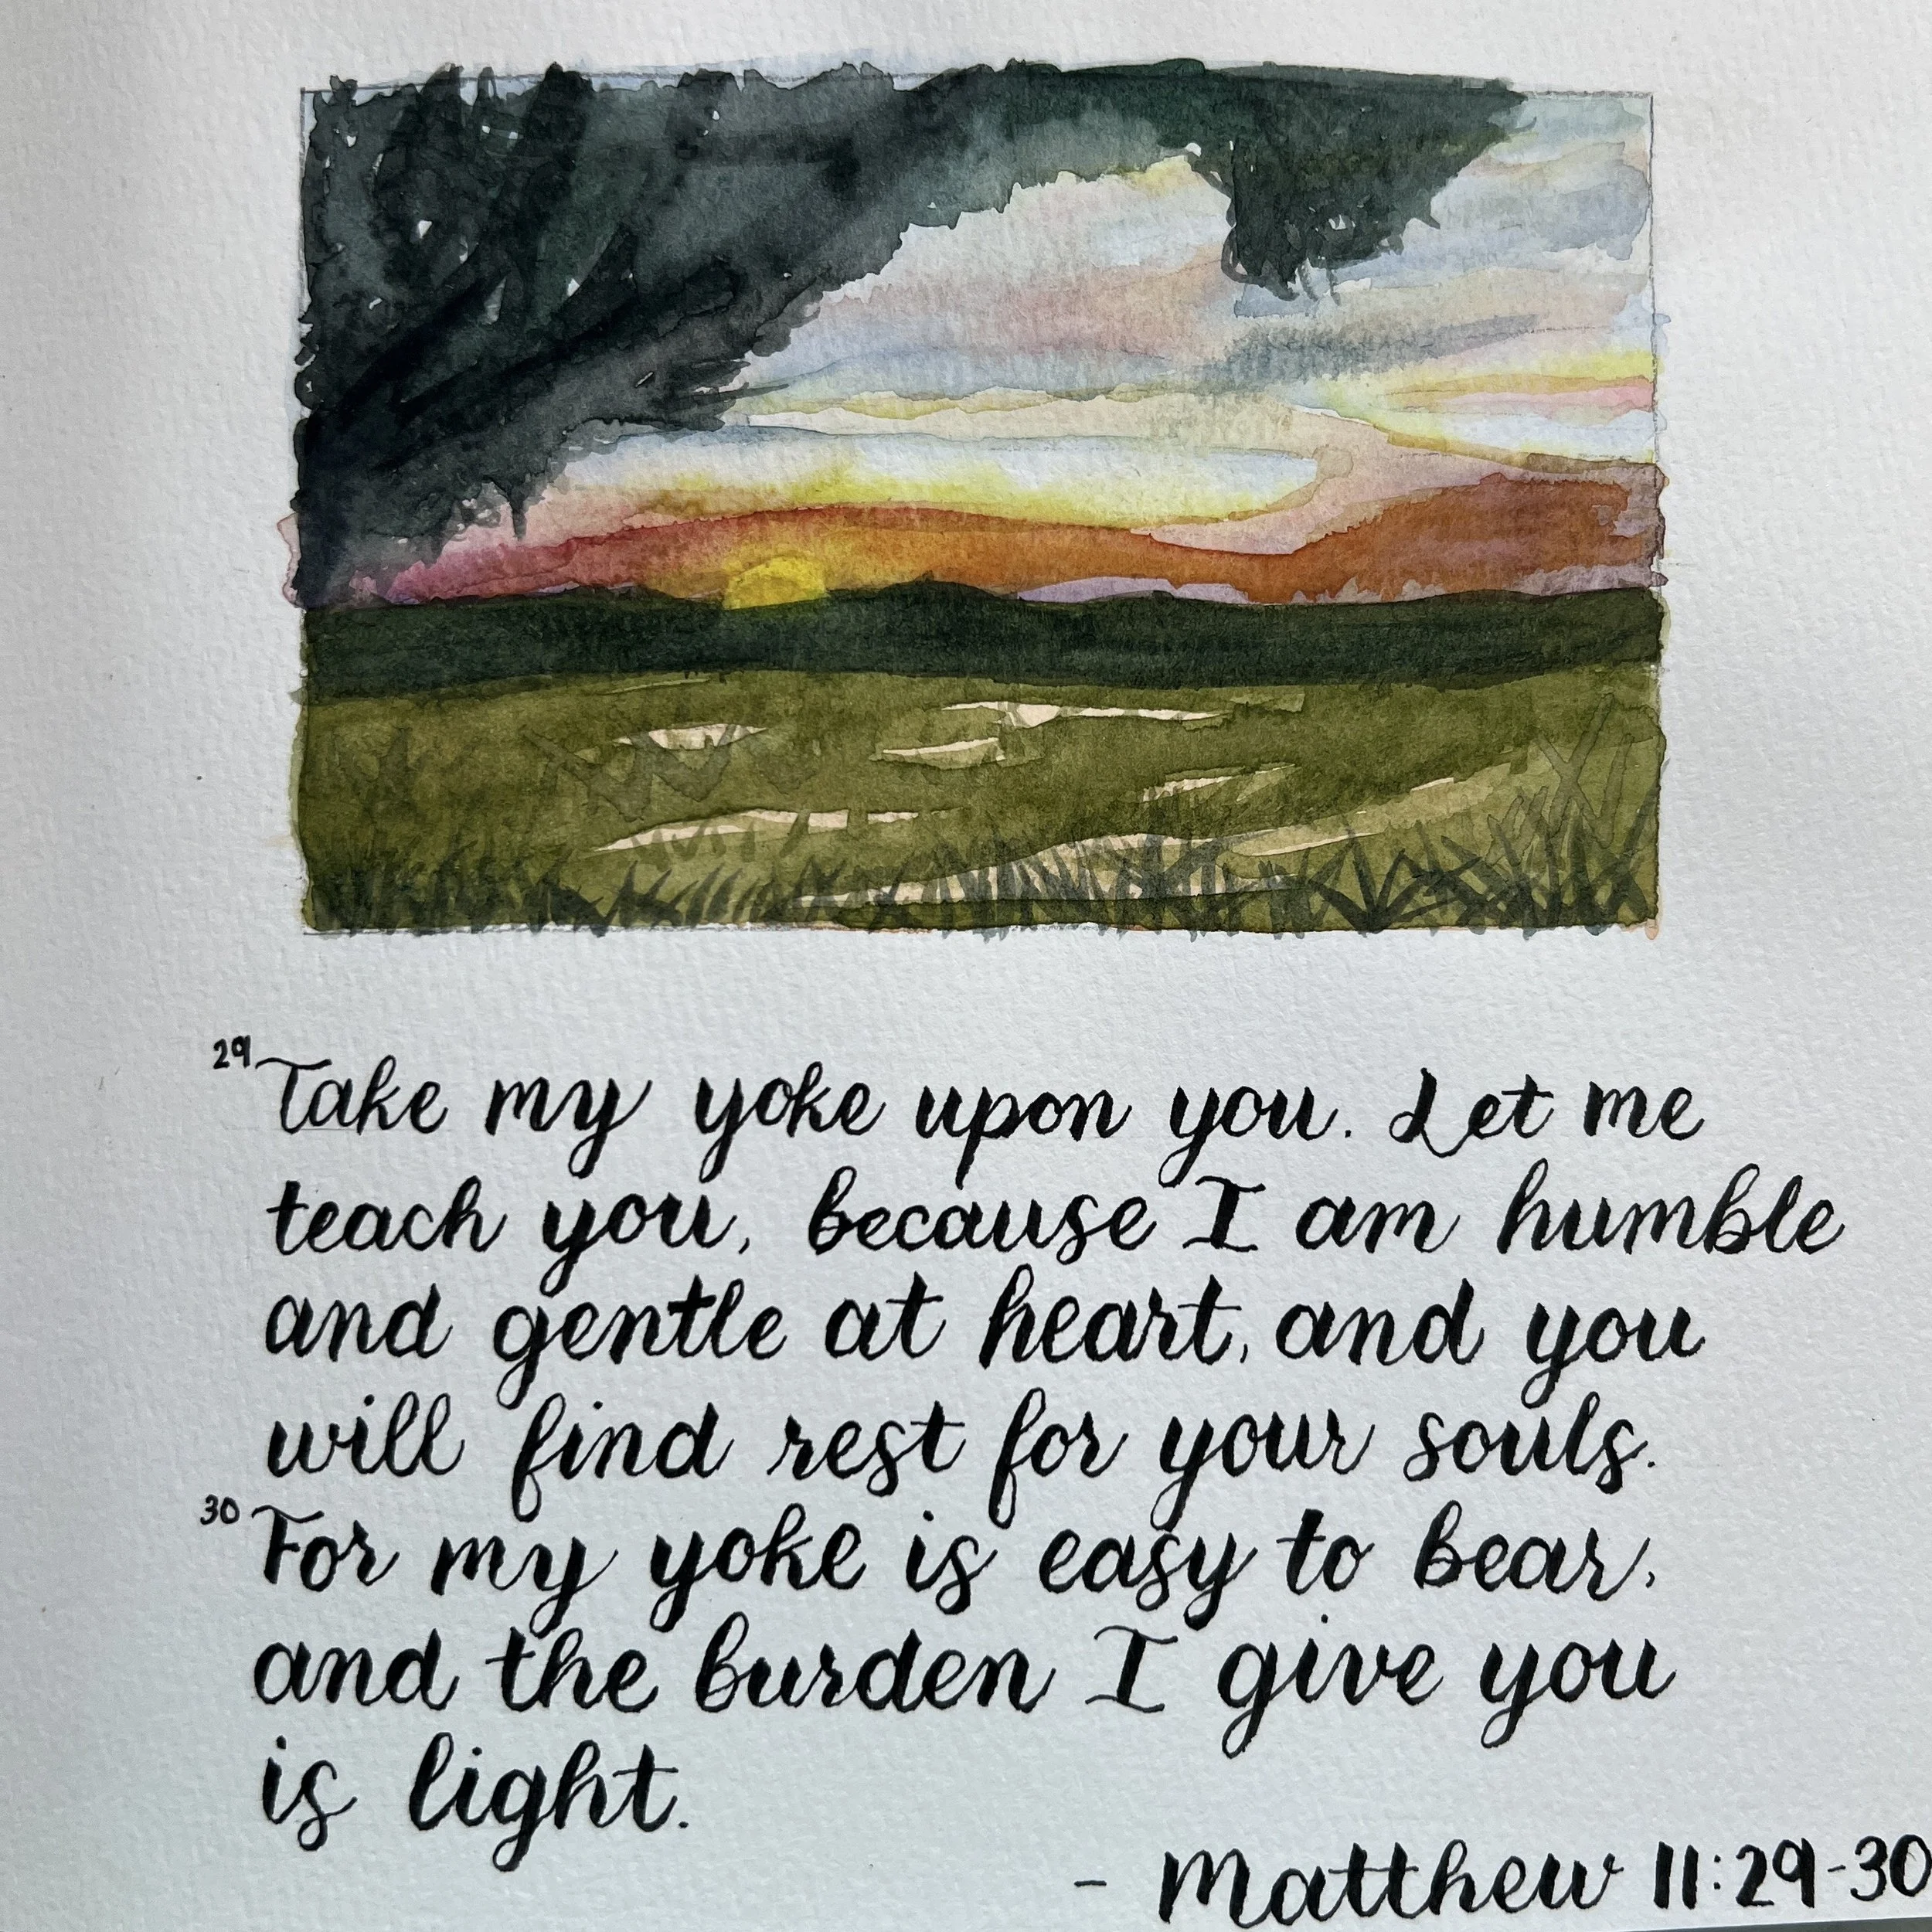 29 Take my yoke upon you. Let me
teach you, because I am humble
and gentle at heart, and you
will find rest for your souls.
30 For my yoke is easy to bear,
and the burden I give you
is light.
- Matthew 11:29-30